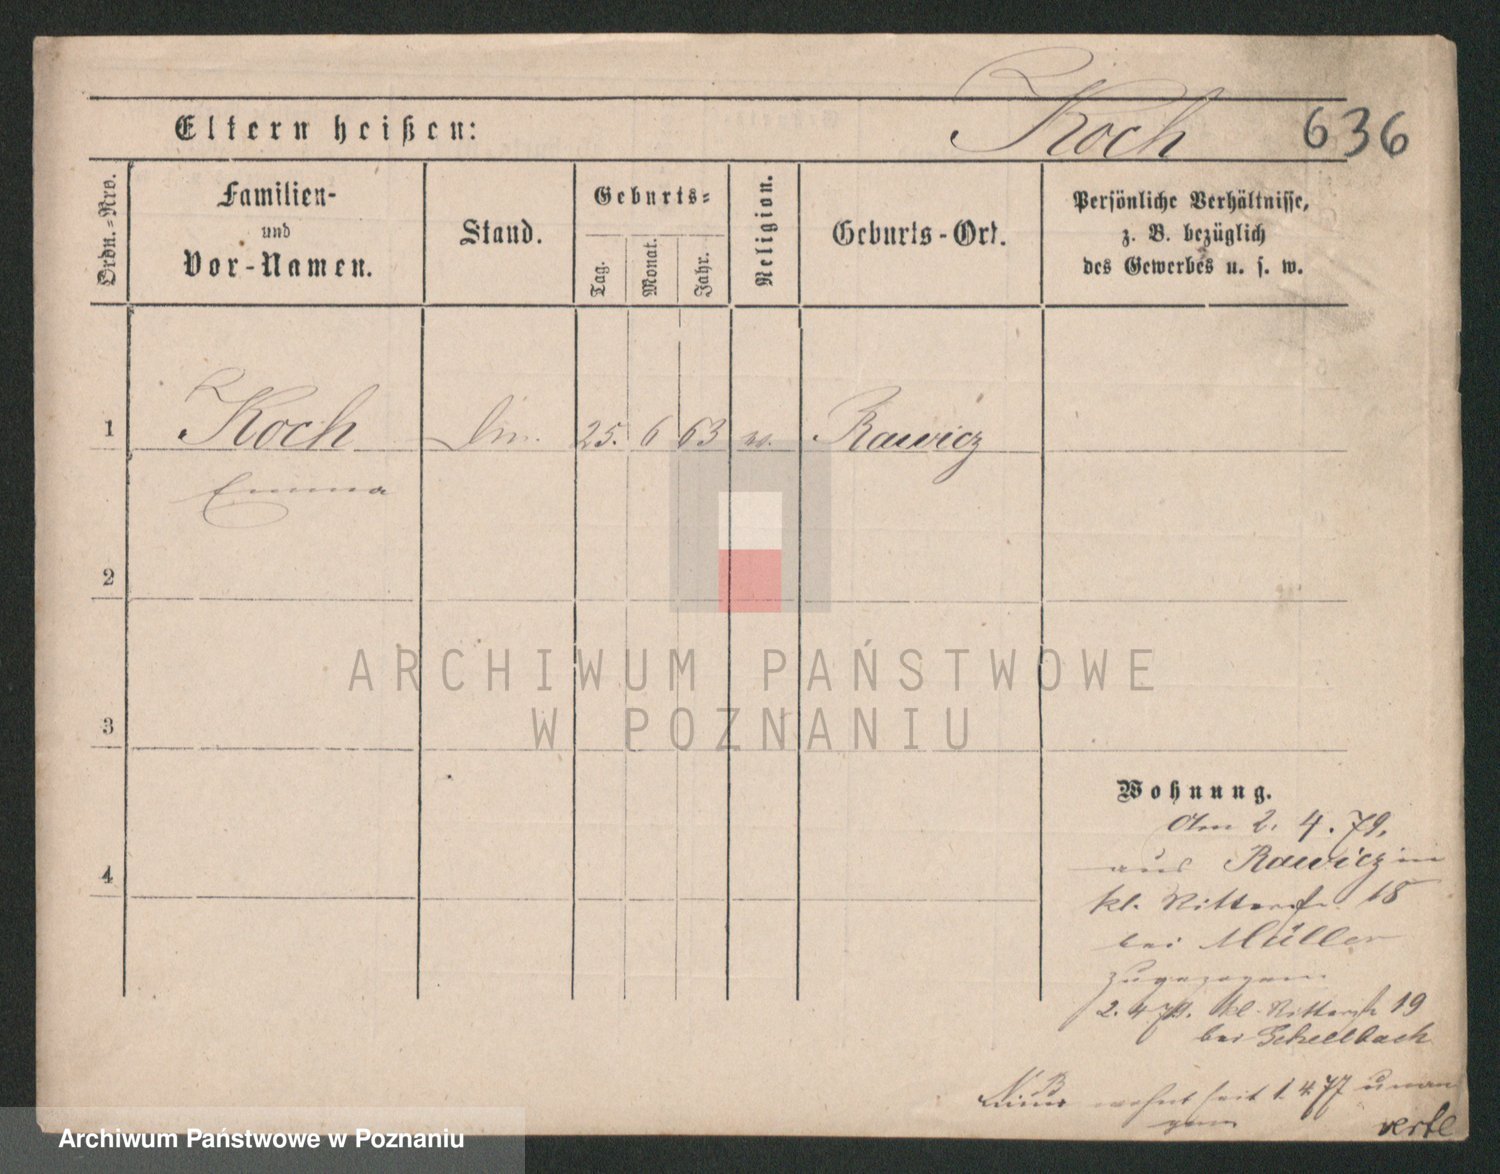 Koch 636
Eltern heißen:
Ordn.-Nro.
Familien-
und
Vor-Namen.
Stand.
Geburts-
Tag.
Monat.
Jahr.
Religion.
Geburts-Ort.
Persönliche Verhältnisse,
z. B. bezüglich
des Gewerbes u. s. w.
1 Koch 25. 6 63 Rawicz
Emma
2
3
4
ARCHIWUM PAŃSTWOWE
W POZNANIU
Wohnung.
Am 2. 4. 79.
aus Rawicz in
kl. Ritterstr. 18
bei Müller
zugezogen
2. 4 79. kl. Ritterstr 19
bei Schellbach
NB
wohnt seit 1. 4. 77
Archiwum Państwowe w Poznaniu